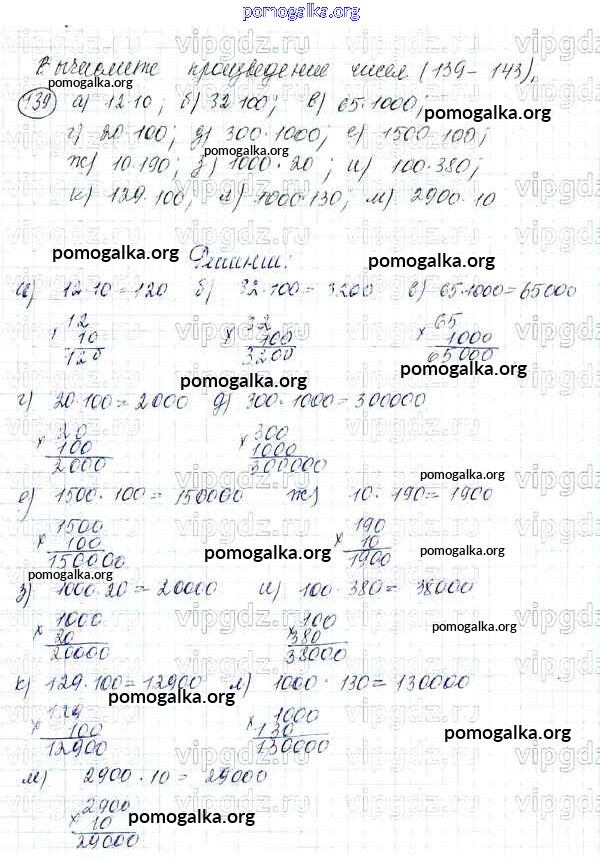 pomogalka.org
Вычислите произведение чисел (139-143).
139 а) 12·10; б) 32·100; в) 65·1000;
г) 20·100; д) 300·1000; е) 1500·100;
ж) 10·190; з) 1000·20; и) 100·380;
к) 129·100; л) 1000·130; м) 2900·10
Решение:
а) 12·10=120 б) 32·100=3200 в) 65·1000=65000
12 32 65
× 10 × 100 × 1000
120 3200 65000
г) 20·100=2000 д) 300·1000=300000
20 300
× 100 × 1000
2000 300000
е) 1500·100=150000 ж) 10·190=1900
1500 190
× 100 × 10
150000 1900
з) 1000·20=20000 и) 100·380=38000
1000 100
× 20 × 380
20000 38000
к) 129·100=12900 л) 1000·130=130000
129 1000
× 100 × 130
12900 130000
м) 2900·10=29000
2900
× 10
29000